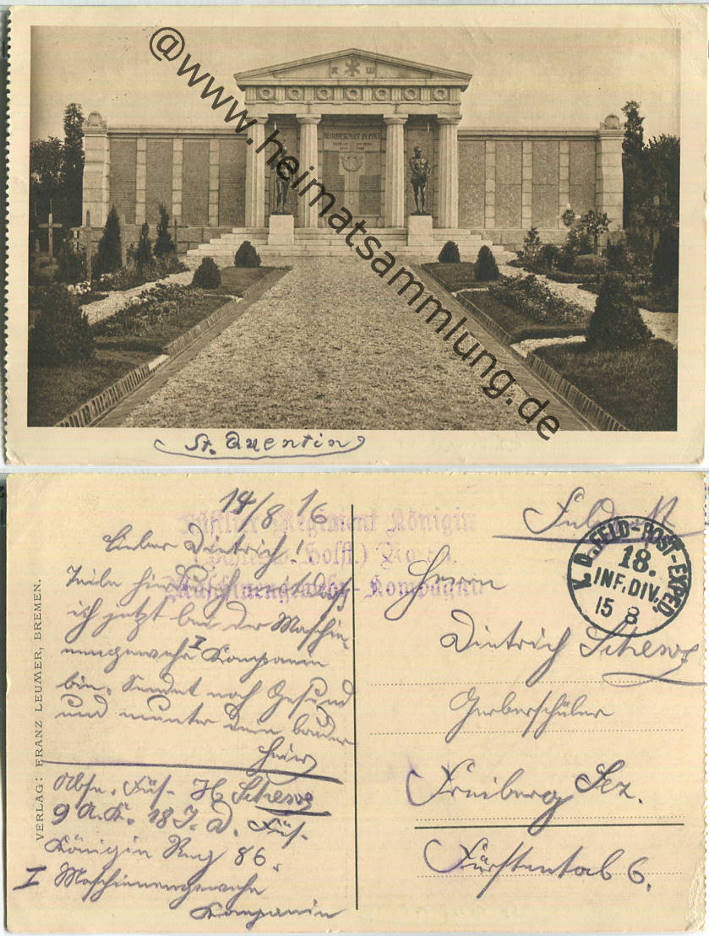 @www.heimatsammlung.de
St. Quentin
14/8 16
Füsilier Regiment Königin
(Schlesw. Holst.) No. 86.
Maschinengewehr-Kompagnie
Lieber Dietrich!
Teile hierdurch mit daß
ich jetzt bei der Maschi-
nengewehr I Kompanie
bin. Sendet noch Gesund
und munter dein Bruder
Abse. Füs. H. Schewz
9 A.K. 18 I. D. Füs-
Königin Reg 86.
I Maschinengewehr
Kompanie
VERLAG: FRANZ LEUWER, BREMEN.
K. D. FELD-POST-EXPED.
18.
INF. DIV.
15 8
Herrn
Dietrich Schewz
Gerberschüler
Freiberg Sez.
Fürstental 6.